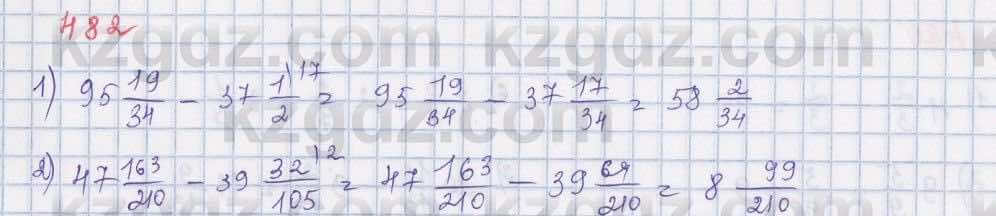 482
kzgdz.com kzgdz.com
1) 95 19/34 - 37 1/2 \17 = 95 19/34 - 37 17/34 = 58 2/34
kzgdz.com kzgdz.com
2) 47 163/210 - 39 32/105 \2 = 47 163/210 - 39 64/210 = 8 99/210